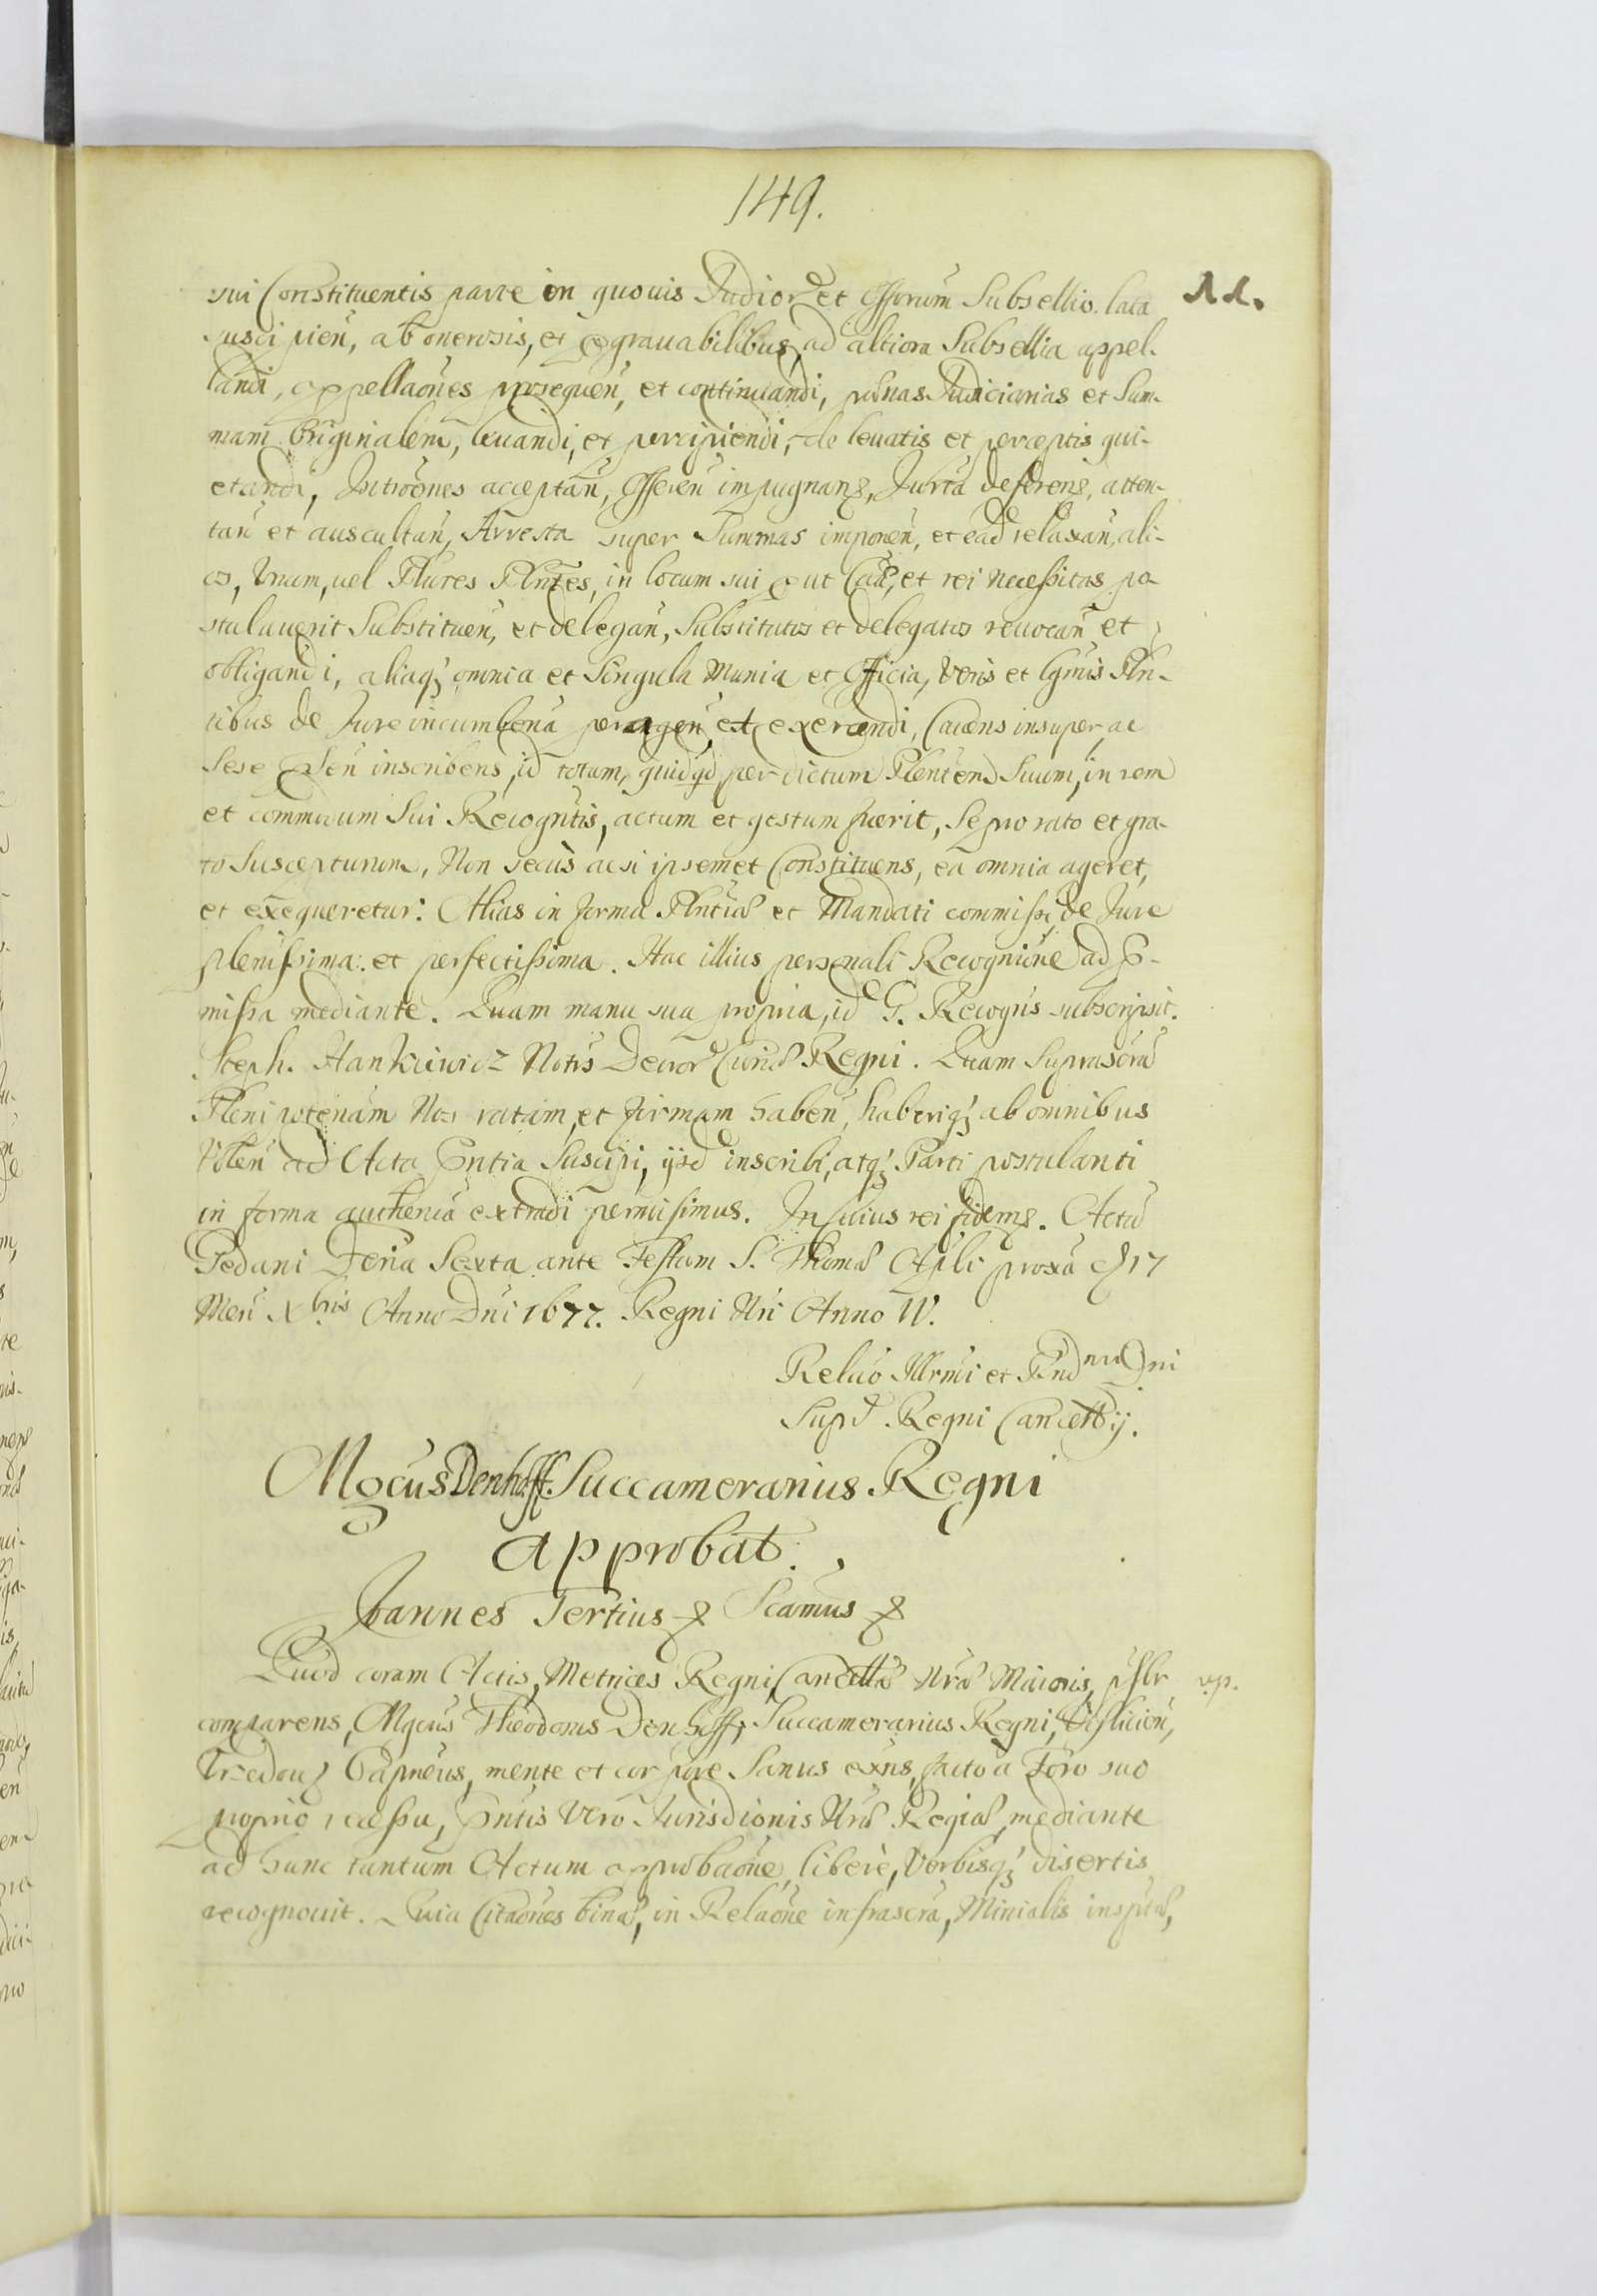 149.
sui Constituentis parte in quouis Judior et Offiorum Subsellio. lata
suscipien̄, ab onerosis, et grauabilibus, ad altiora Subsellia appel-
landi, appellaōnes prosequen̄, et continuandi, poēnas Judiciarias et Sum-
mam Originalem, leuandi, et percipiendi, de leuatis et perceptis qui-
etandi, Introōnes acceptan̄, Offeren̄ impugnan, Jurta deferen, atten-
tan̄ et auscultan̄, Arresta super Summas imponen̄, et ead relaxan̄, ali-
os, Vnum, uel Plures Plntes, in locum sui put Cāa, et rei necessitas po-
stulauerit Substituen̄, et delegan̄, Substitutos et delegatos reuocan̄ et
obligandi, aliaq omnia et Singula Munia et Officia, Veris et Lgmis Pln-
tibus de Jure incumben̄a peragen̄, et exercendi, Cauens insuper, ac
Sese Psen̄ inscribens, id totum, quidqd per dictum Plentem Suum, in rem
et commodum Sui Recogntis, actum et gestum fuerit, Se pro rato et gra-
to Suscepturum, Non secùs acsi ipsemet Constituens, ea omnia ageret,
et exequeretur. Alias in forma Plntiæ et Mandati commissi, de Jure
plenissima. et perfectissima. Hac illius personali Recognitiōne ad P-
missa mediante. Quam manu sua propria, id G. Recogns subscripsit.
Steph. Hankiewicz Notrs Decror Curiæ Regni. Quam Suprascrā
Plenipoten̄am Nos ratam, et firmam haben̄, haberiq ab omnibus
Volen̄ ad Acta Pntia Suscipi, ijsd inscribi, atq Parti postulanti
in forma authen̄ca extradi permisimus. In Cuius rei fidem. Actū
Gedani Feria Sexta ante Festum S. Thomæ Apli proxa d 17
Men̄ Xbris Anno Dni 1677. Regni Nri Anno IV.
Relāo Illrmi et Rndmi Dni
Supd. Regni Cancellrij.
Mgcus Denhoff. Succamerarius Regni
approbat.
Joannes Tertius Scāmus
Quod coram Actis, Metrices Regni, Cancellæ Nræ Maioris, pslr
comparens, Mgcus Theodorus Denhoff, Succamerarius Regni,
Capneus, mente et corpore Sanus exns, facto a Foro suo
proprio recessu, Pntis Vero Jurisdionis Nræ Regiæ, mediante
ad hunc tantum Actum approbaōne, liberè, Verbisq disertis
recognouit. Quia Citaōnes binas, in Relaōne infrascrā, Minialis